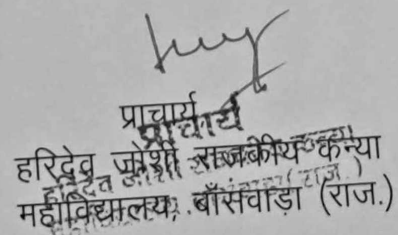 प्राचार्य
प्राचार्य
हरिदेव जोशी राजकीय कन्या
महाविद्यालय, बाँसवाड़ा (राज.)